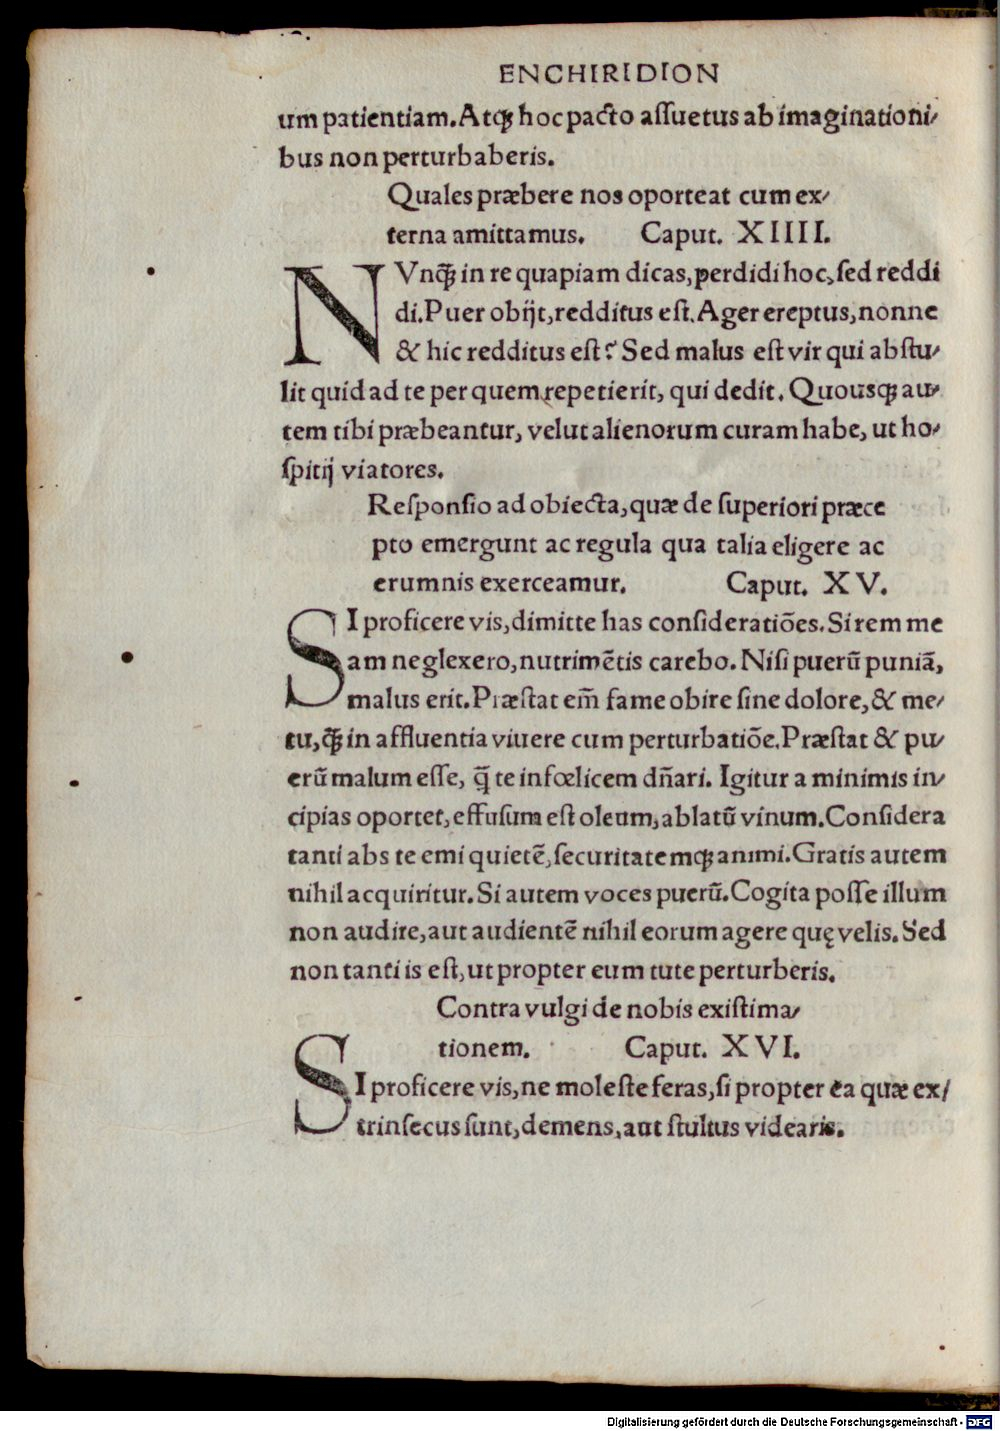 ENCHIRIDION
um patientiam. Atqꝫ hoc pacto aſſuetus ab imaginationi/
bus non perturbaberis.
Quales præbere nos oporteat cum ex/
terna amittamus. Caput. XIIII.
NVnqꝫ in re quapiam dicas, perdidi hoc, ſed reddi
di. Puer obijt, redditus eſt. Ager ereptus, nonne
& hic redditus eſt? Sed malus eſt vir qui abſtu/
lit quid ad te per quem repetierit, qui dedit. Quousqꝫ au/
tem tibi præbeantur, velut alienorum curam habe, ut ho/
ſpitij viatores.
Reſponſio ad obiecta, quæ de ſuperiori præce
pto emergunt ac regula qua talia eligere ac
erumnis exerceamur. Caput. XV.
SI proficere vis, dimitte has conſideratiões. Si rem me
am neglexero, nutrimẽtis carebo. Niſi puerũ puniã,
malus erit. Præſtat em̃ fame obire ſine dolore, & me/
tu, qꝫ in affluentia viuere cum perturbatiõe. Præſtat & pu/
erũ malum eſſe, q̃ te infœlicem dñari. Igitur a minimis in/
cipias oportet, effusum eſt oleum, ablatũ vinum. Conſidera
tanti abs te emi quietẽ, ſecuritatemqꝫ animi. Gratis autem
nihil acquiritur. Si autem voces puerũ. Cogita poſſe illum
non audire, aut audientẽ nihil eorum agere quę velis. Sed
non tanti is eſt, ut propter eum tute perturberis.
Contra vulgi de nobis exiſtima/
tionem. Caput. XVI.
SI proficere vis, ne moleſte feras, ſi propter ea quæ ex/
trinſecus ſunt, demens, aut ſtultus videaris.
Digitalisierung gefördert durch die Deutsche Forschungsgemeinschaft - DFG